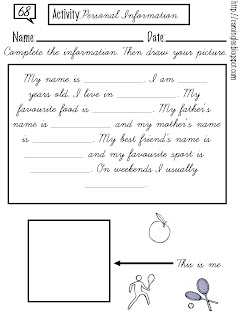 68 Activity Personal Information
Name Date
Complete the information. Then draw your picture.
My name is . I am
years old. I live in . My
favourite food is . My father's
name is and my mother's name
is . My best friend's name is
and my favourite sport is
. On weekends I usually
.
This is me